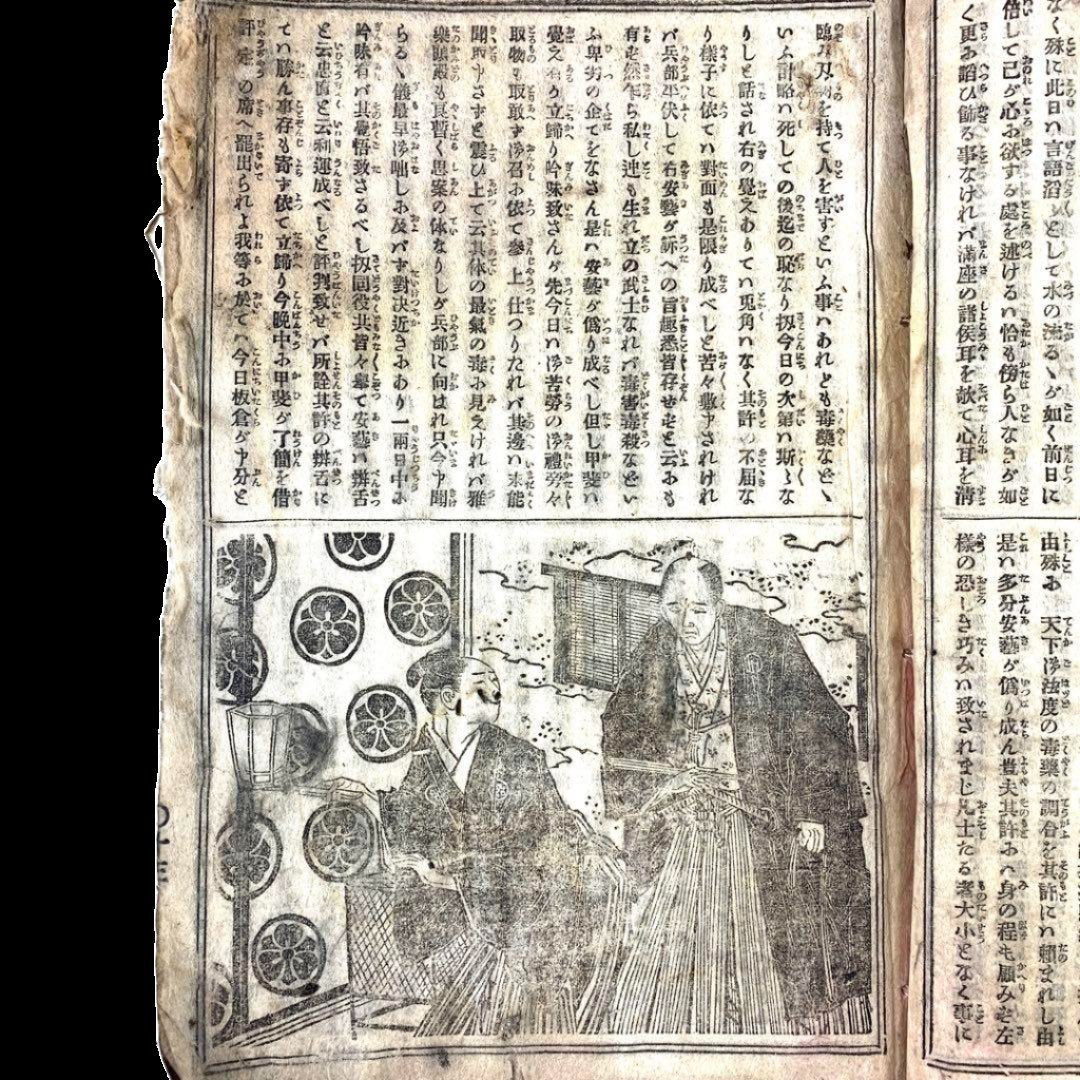 なく殊に此日ハ言語滔々として水の流るゝが如く前日に
倍して己が心お欲する處を述けるハ恰も傍ら人なきが如
く更お謟ひ飾る事なけれバ滿座の諸侯耳を欹て心耳を淸
由殊お 天下御法度の毒藥の調合を其許にハ賴まれし由
是ハ多分安藝が僞り成ん豊夫其許おハ身の程も顧みを左
樣の恐しき巧みハ致されまじ凡士たる者大小となく事に
臨み刃物を持て人を害すといふ事ハあれとも毒藥などゝ
いふ計略ハ死しての後迄の恥なり扨今日の次第ハ斯々な
りしと話され右の覺えありてハ兎角ハなく其許の不屆な
り樣子に依てハ對面も是限り成べしと苦々敷申されけれ
バ兵部平伏して右安藝が訴への旨趣悉皆存せをと云おも
有を然乍ら私し連も生れ立の武士なれバ毒害毒殺などい
ふ卑劣の企てをなさん是ハ安藝が僞り成べし但し甲斐ハ
覺え有り立歸り吟味致さんが先今日ハ御苦勞の御禮旁々
取物も取敢す御召お依て參上仕つりたれバ其邊ハ未能
聞取申さずと震ひ上て云其体の最氣の毒お見えけれバ雅
樂頭殿も良暫く思案の体なりしが兵部に向はれ只今申聞
らるゝ儀最早御咄しお及バず對決近きおあり一兩日中お
吟味有バ其覺悟致さるべし扨同役共皆々擧て安藝ハ辨舌
と云忠直と云利運成べしと評判致せバ所詮其許の辨舌に
てハ勝ん事存も寄す依て立歸り今晚中お甲斐が了簡を借
評定の席へ罷出られよ我等お於てハ今日板倉が申分と